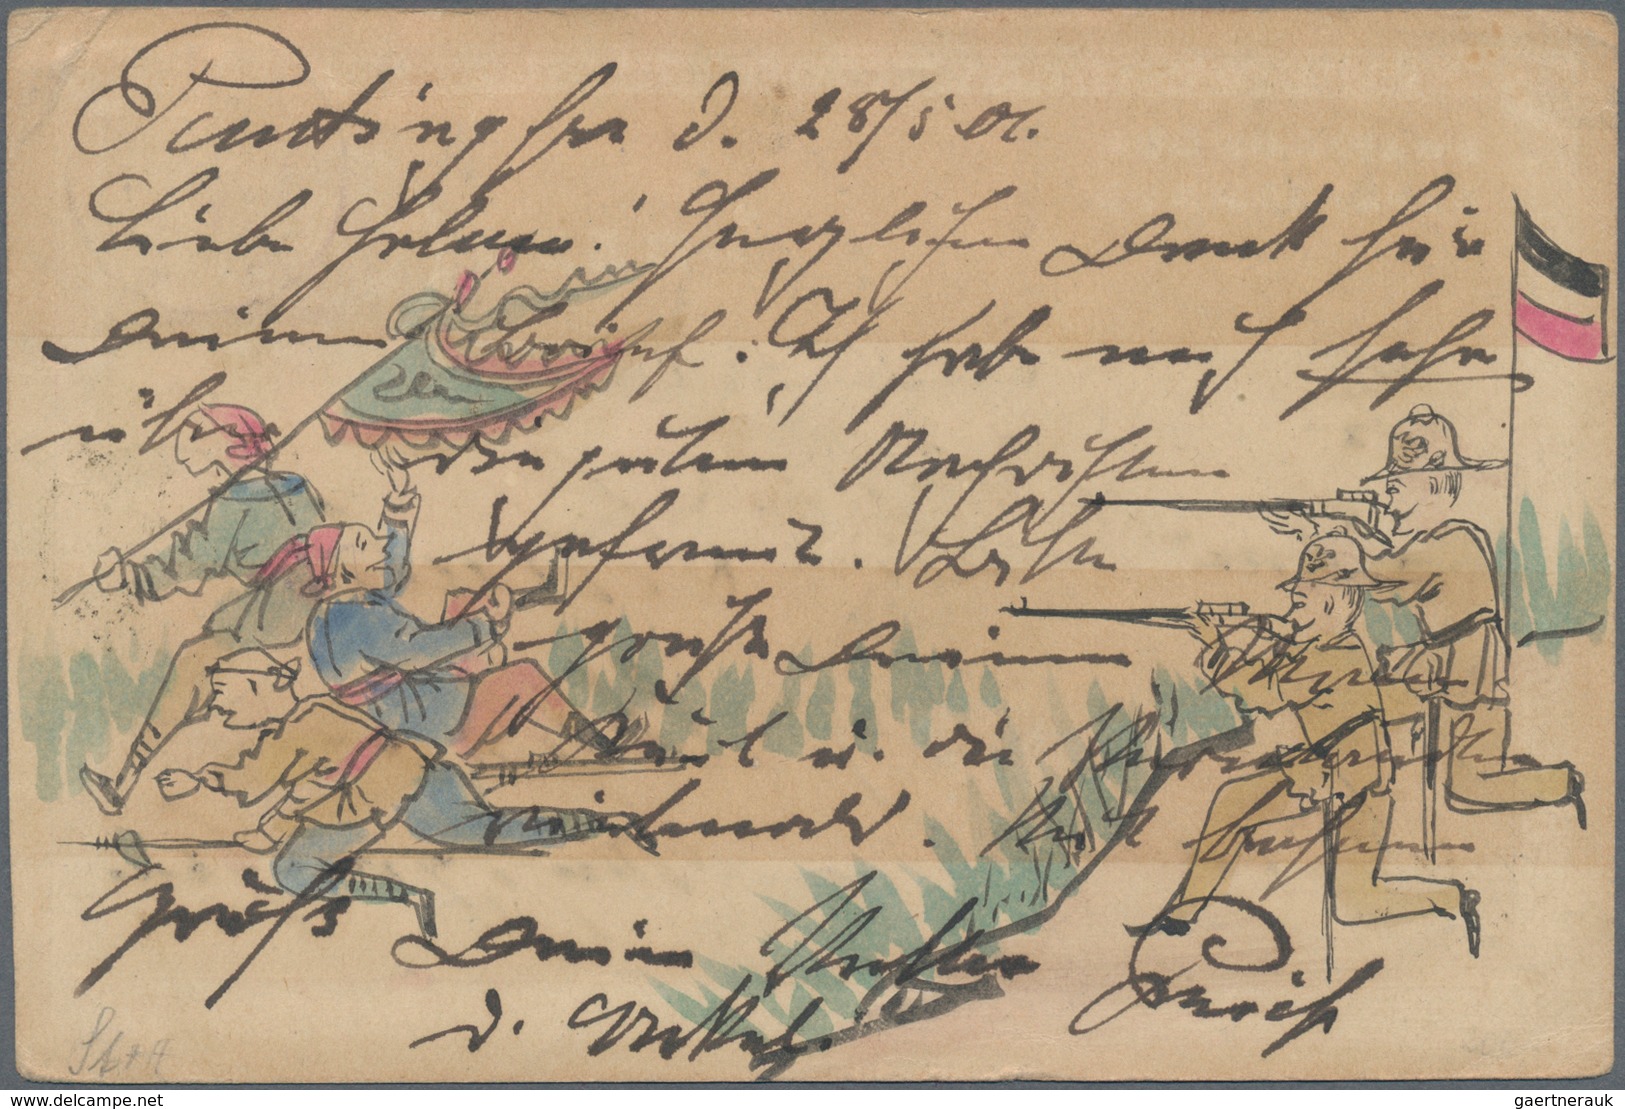 Pautingfu d. 28/5 01.
Liebe Helene! Herzlichen Dank für
Deinen Brief. Ich habe mich sehr
über die guten Nachrichten
gefreut. Bitte
grüße Deinen
u. die
vielmals. Mit besten
Gruß Dein Vetter Erich
d.
St + A
© delcampe.net
gaertnerauk